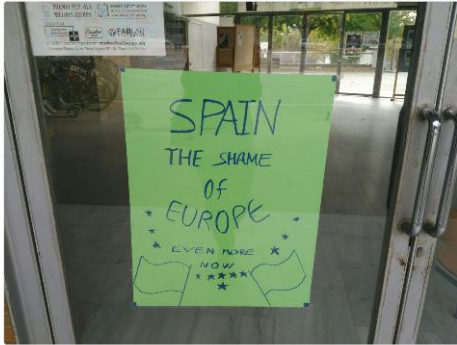 SPAIN
THE SHAME
OF
EUROPE
EVEN MORE
NOW